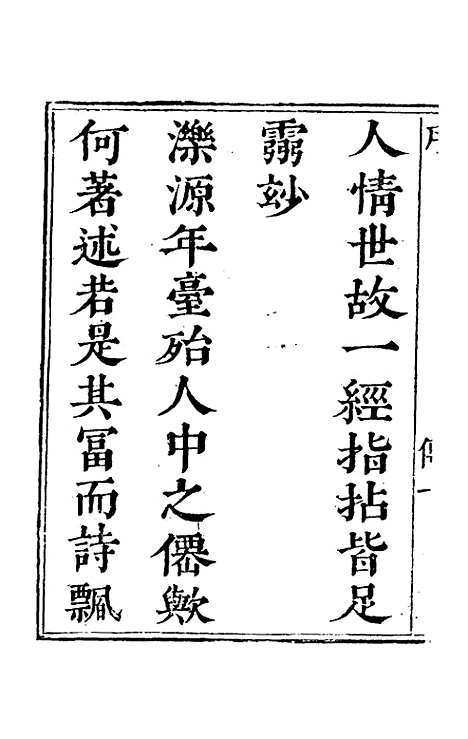 人情世故一經指拈皆足
玅
濼源年臺殆人中之僊歟
何著述若是其冨而詩飄